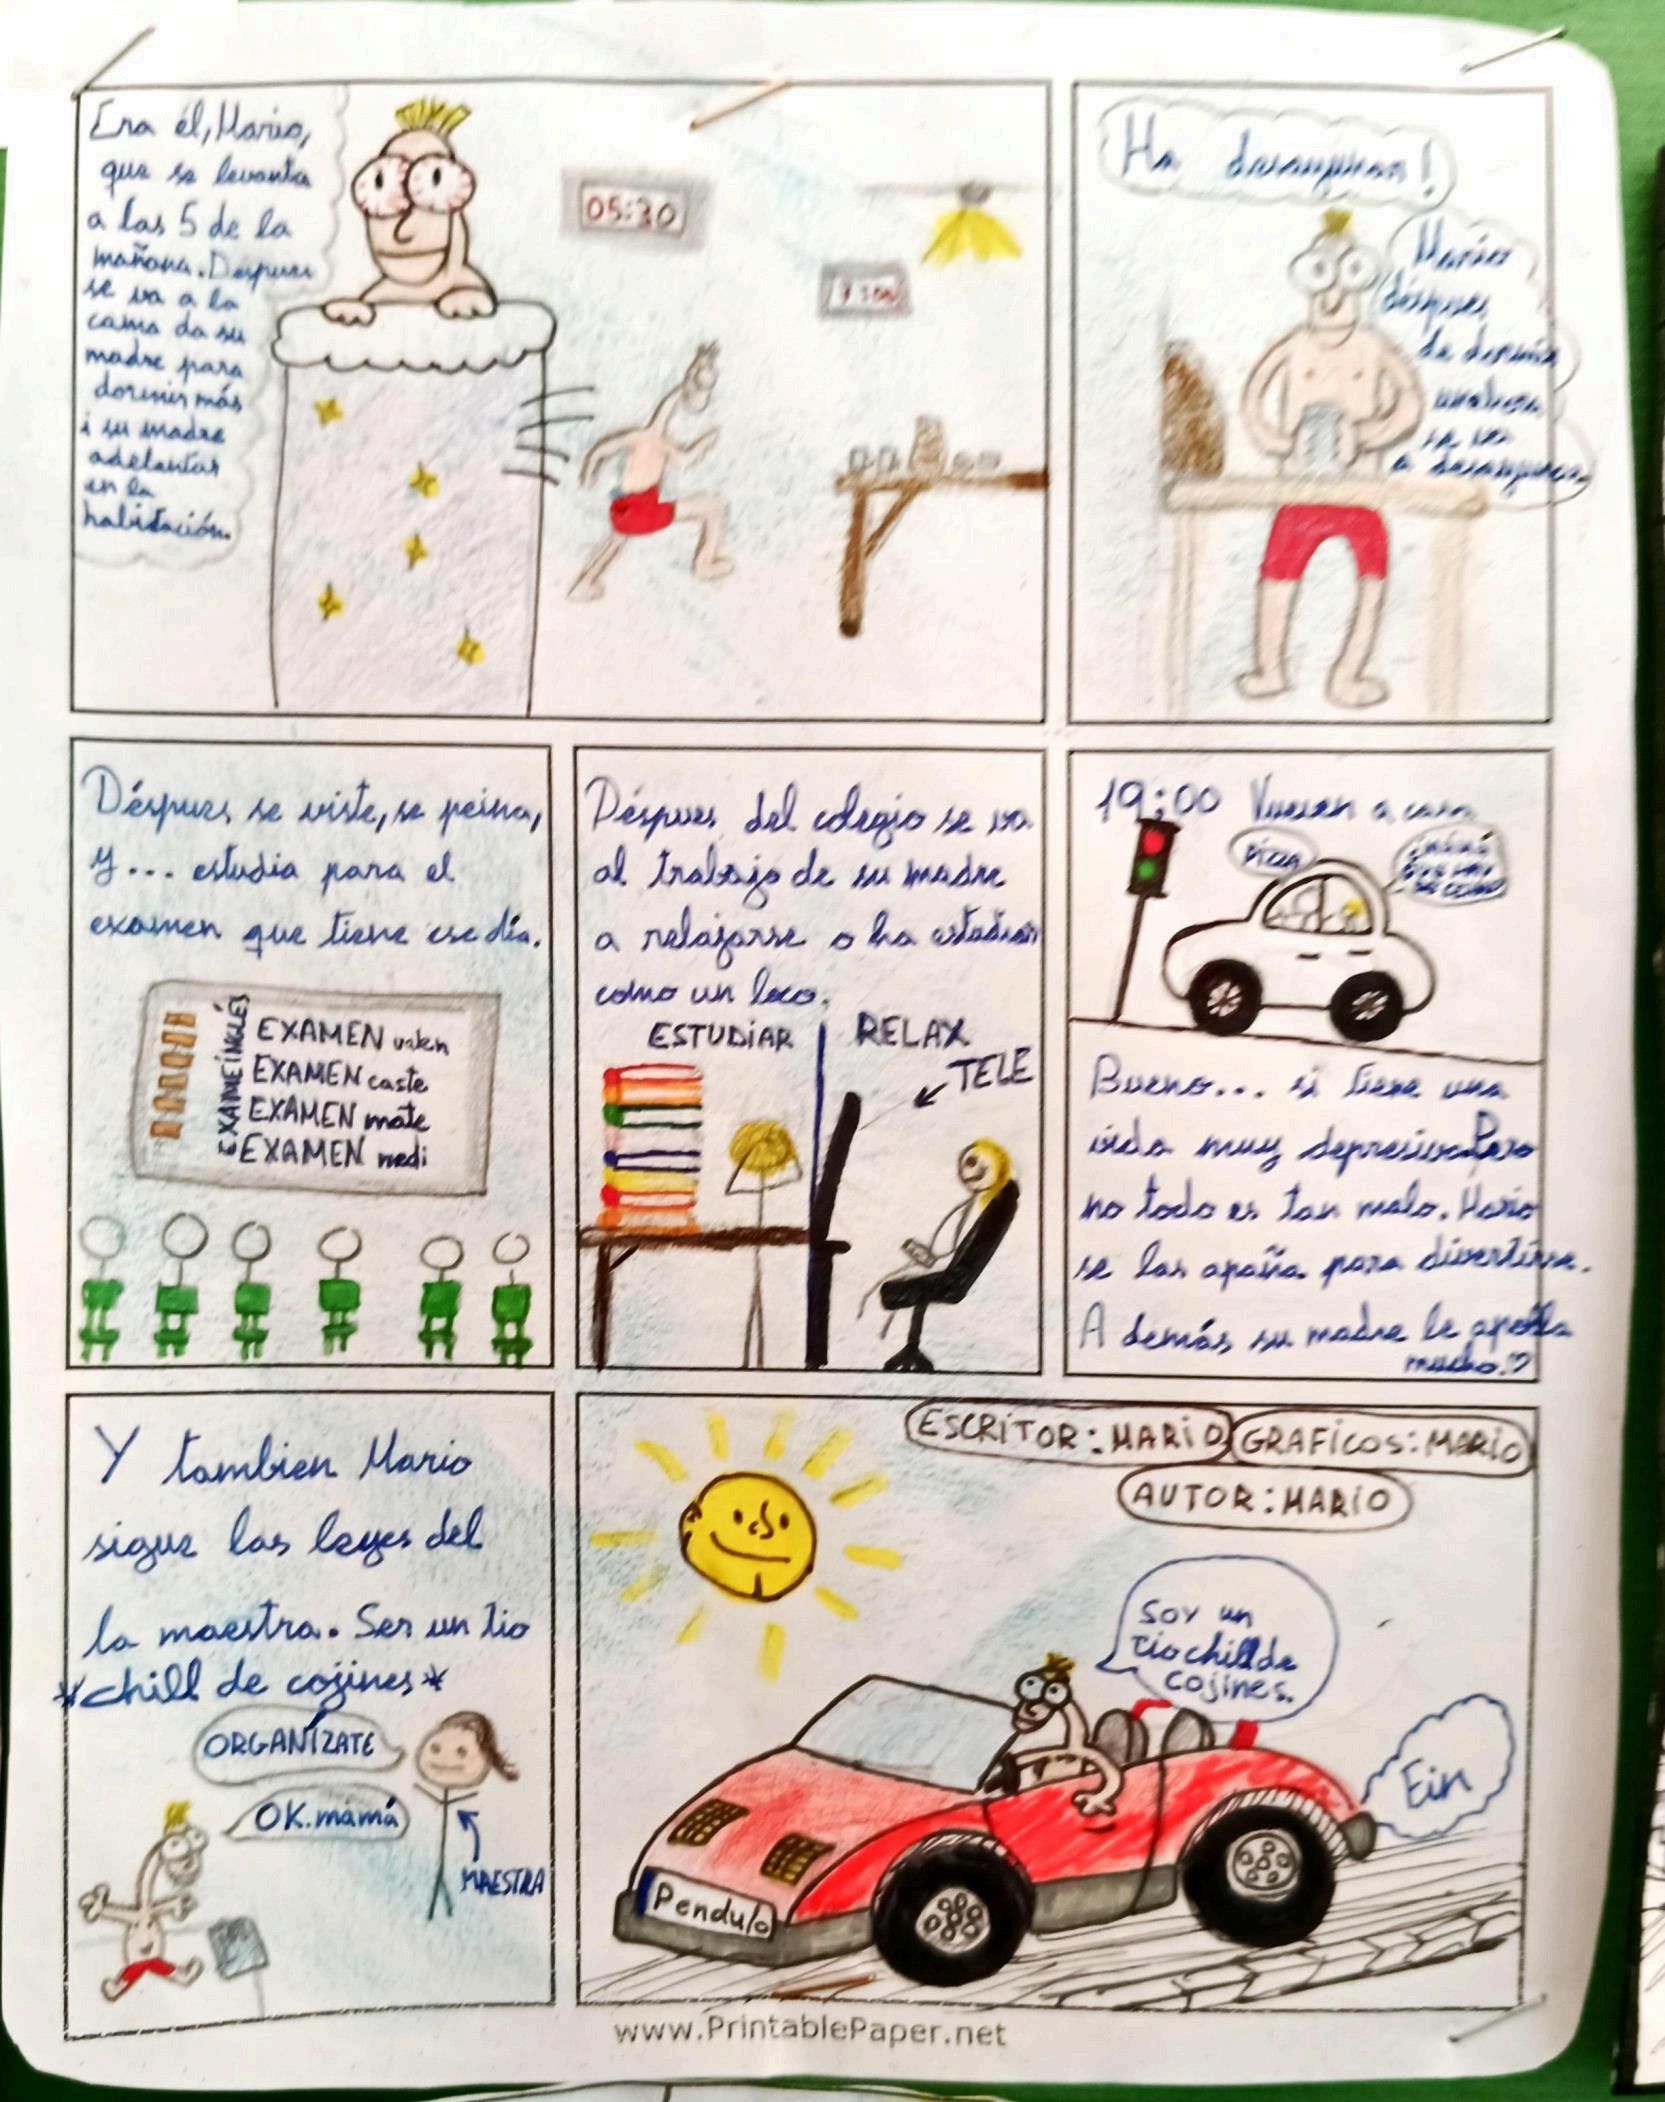 Era él, Mario,
que se levanta
a las 5 de la
mañana. Después
se va a la
cama da su
madre para
dormir más
i su madre
adelantar
en la
habitación.
05:30
Ha desayunar!
Mario
déspues
de dormir
se va
a desayunar.
Déspues se viste, se peina,
y... estudia para el
examen que tiene ese día.
EXAMEINGLÉS
EXAMEN valen
EXAMEN caste
EXAMEN mate
EXAMEN medi
Déspues del colegio se va
al trabajo de su madre
a relajarse o ha estudiar
como un loco.
ESTUDIAR
RELAX
TELE
19:00 Vuelven a casa
PIZZA
Bueno... si tiene una
vida muy depresiva. Pero
no todo es tan malo. Mario
se las apaña para divertirse.
A demás su madre le apolla
mucho.♡
Y tambien Mario
sigue las leyes del
la maestra. Ser un tio
*chill de cojines*
ORGANÍZATE
OK. mámá
MAESTRA
ESCRITOR: MARIO
GRAFICOS: MARIO
AUTOR: MARIO
SOY un
tio chill de
cojines.
Fin
Pendulo
www.PrintablePaper.net